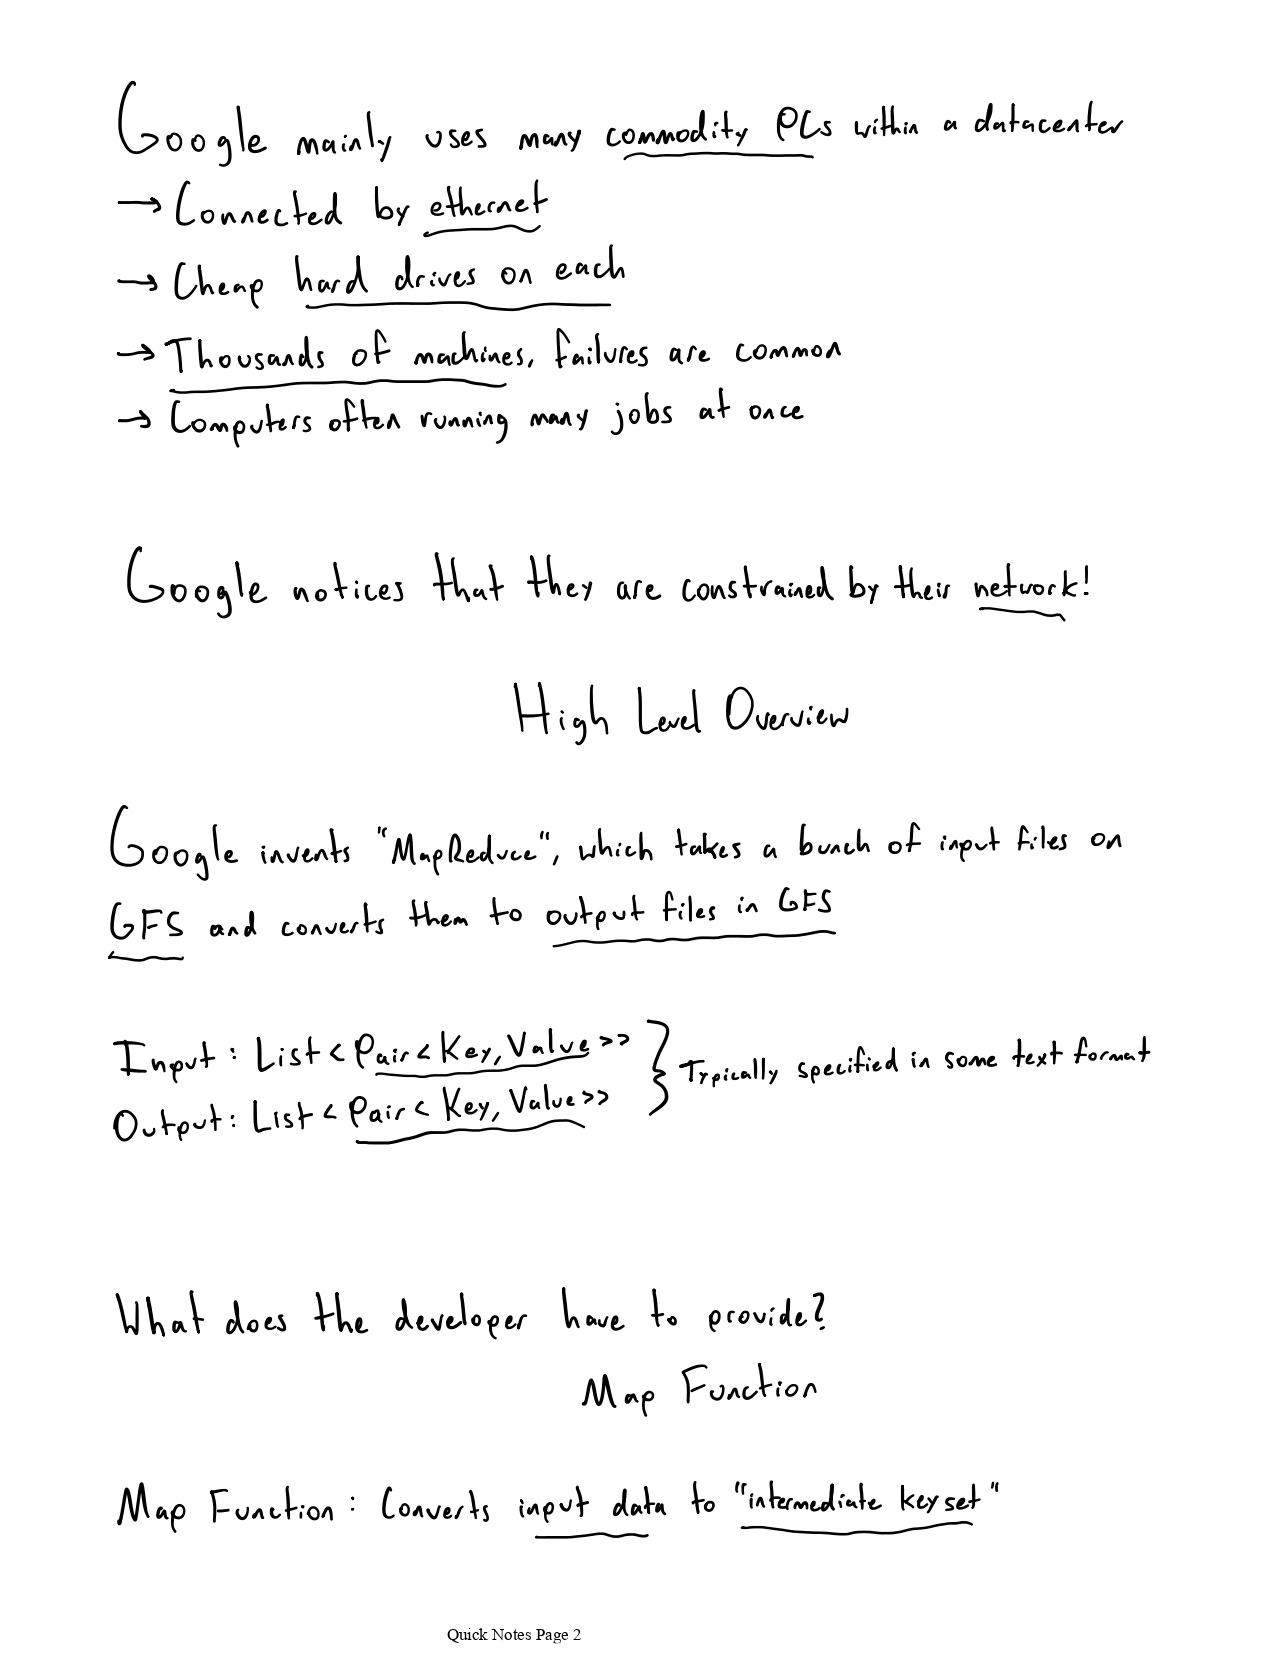 Google mainly uses many commodity PCs within a datacenter
→ Connected by ethernet
→ Cheap hard drives on each
→ Thousands of machines, failures are common
→ Computers often running many jobs at once
Google notices that they are constrained by their network!
High Level Overview
Google invents "MapReduce", which takes a bunch of input files on
GFS and converts them to output files in GFS
Input: List<Pair<Key, Value>> } Typically specified in some text format
Output: List<Pair<Key, Value>>
What does the developer have to provide?
Map Function
Map Function: Converts input data to "intermediate key set"
Quick Notes Page 2